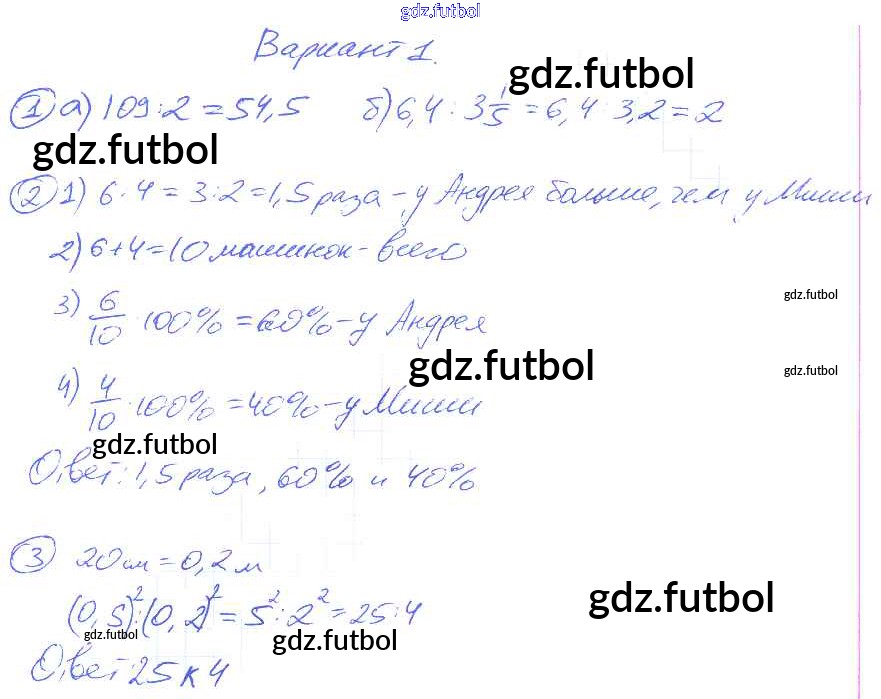 gdz.futbol
Вариант 1.
gdz.futbol
① а) 109:2 = 54,5 б) 6,4 : 3 1/5 = 6,4 : 3,2 = 2
gdz.futbol
② 1) 6:4 = 3:2 = 1,5 раза - у Андрея больше, чем у Миши
2) 6+4=10 машинок - всего
gdz.futbol
3) 6/10 · 100% = 60% - у Андрея
gdz.futbol
gdz.futbol
4) 4/10 · 100% = 40% - у Миши
gdz.futbol
Ответ: 1,5 раза, 60% и 40%
③ 20 см = 0,2 м
gdz.futbol
(0,5)²:(0,2)² = 5²:2² = 25:4
gdz.futbol
gdz.futbol
Ответ: 25 к 4